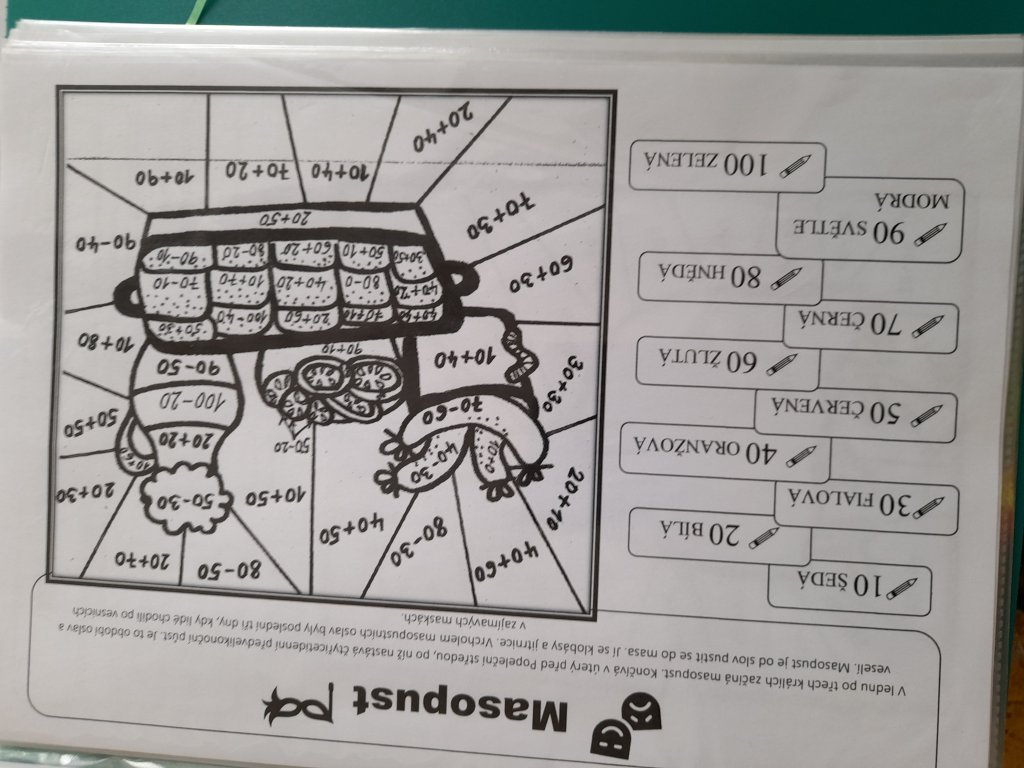 Masopust
V lednu po třech králích začíná masopust. Končívá v úterý před Popeleční středou, po níž nastává čtyřicetidenní předvelikonoční půst. Je to období oslav a
veselí. Masopust je od slov pustit se do masa. Jí se klobásy a jitrnice. Vrcholem masopustních oslav byly poslední tři dny, kdy lidé chodili po vesnicích
v zajímavých maskách.
10 ŠEDÁ
20 BÍLÁ
30 FIALOVÁ
40 ORANŽOVÁ
50 ČERVENÁ
60 ŽLUTÁ
70 ČERNÁ
80 HNĚDÁ
90 SVĚTLE
MODRÁ
100 ZELENÁ
40+60
80-50
20+70
80-30
20+10
40+50
10+50
50-30
20+30
10+0
40-30
50-20
20+20
10+60
50+50
70-60
30+30
100-20
10+40
90+10
90-50
10+80
40+40
70+10
20+60
100-40
50+30
60+30
40+20
80-0
40+20
10+70
70-10
30+50
50+10
60+20
80-20
90-10
90-40
70+30
20+50
20+40
10+40
70+20
10+90